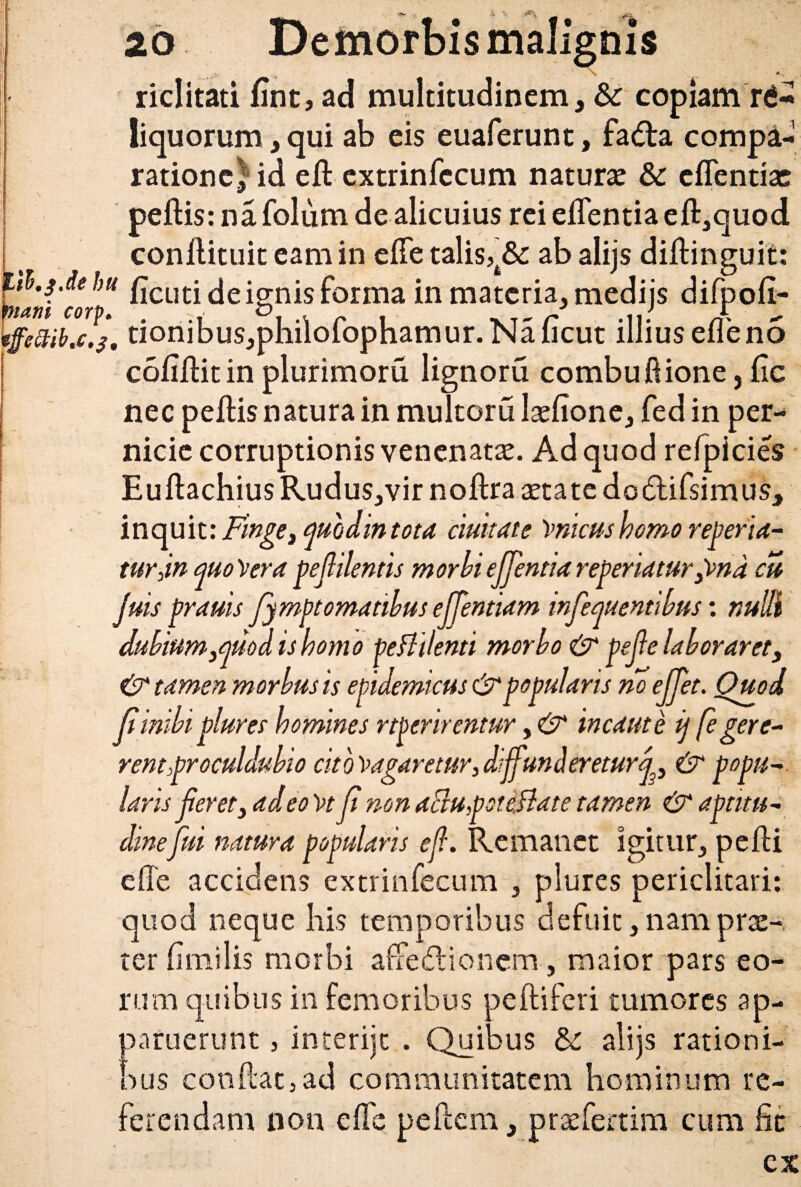 20 De morbis malignis
riclitati ſint, ad multitudinem, & copiam re-
liquorum, qui ab eis euaſerunt, facta compa-
ratione, id eſt extrinſecum naturæ & eſſentiæ
peſtis: nã ſolùm de alicuius rei eſſentia eſt, quod
conſtituit eam in eſſe talis, & ab alijs diſtinguit:
Lib.3.de hu
mani corp.
affectib.c.3.
ſicuti de ignis forma in materia, medijs diſpoſi-
tionibus, philoſophamur. Nã ſicut illius eſſe nõ
cõſiſtit in plurimorũ lignorũ combuſtione, ſic
nec peſtis natura in multorũ læſione, ſed in per-
nicie corruptionis venenatæ. Ad quod reſpiciẽs
Euſtachius Rudus, vir noſtra ætate doctiſsimus,
inquit: Finge, quòd in tota ciuitate vnicus homo reperia-
tur, in quo vera peſtilentis morbi eſſentia reperiatur, vnà cũ
ſuis prauis ſymptomatibus eſſentiam inſequentibus: nulli
dubium, quòd is homo peſtilenti morbo & peſte laboraret,
& tamen morbus is epidemicus & popularis nõ eſſet. Quod
ſi inibi plures homines rtperirentur, & incautè ij ſe gere-
rent, proculdubio citò vagaretur, diffundereturq́;, & popu-
laris fieret, adeo vt ſi non actu, poteſtate tamen & aptitu-
dine ſui natura popularis eſt. Remanet igitur, peſti
eſſe accidens extrinſecum, plures periclitari:
quod neque his temporibus defuit, nam præ-
ter ſimilis morbi affectionem, maior pars eo-
rum quibus in femoribus peſtiferi tumores ap-
paruerunt, interijt. Quibus & alijs rationi-
bus conſtat, ad communitatem hominum re-
ferendam non eſſe peſtem, præſertim cum ſit
ex